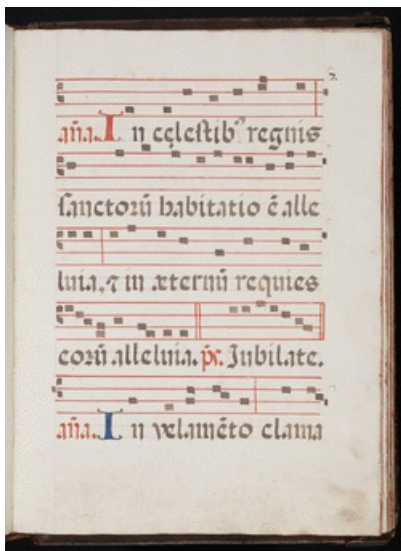 an̄a. In cęlestib⁹ regnis
sanctorū habitatio ē alle
luia, ⁊ in æternū requies
eorū alleluia. ps. Jubilate.
an̄a. In velamēto clama